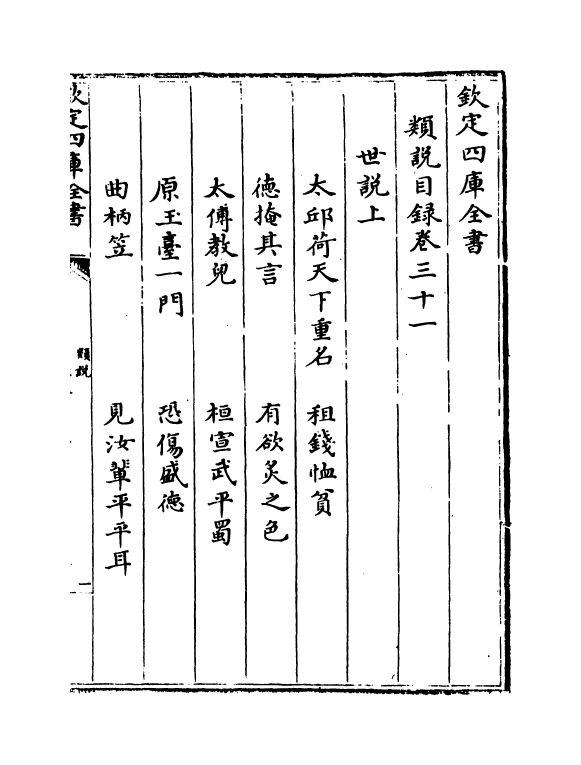 欽定四庫全書
類說目録卷三十一
世說上
太邱荷天下重名　租錢恤貧
德掩其言　有欲炙之色
太傅教兒　桓宣武平蜀
原玉臺一門　恐傷盛德
曲柄笠　見汝輩平平耳
欽定四庫全書　類說　一